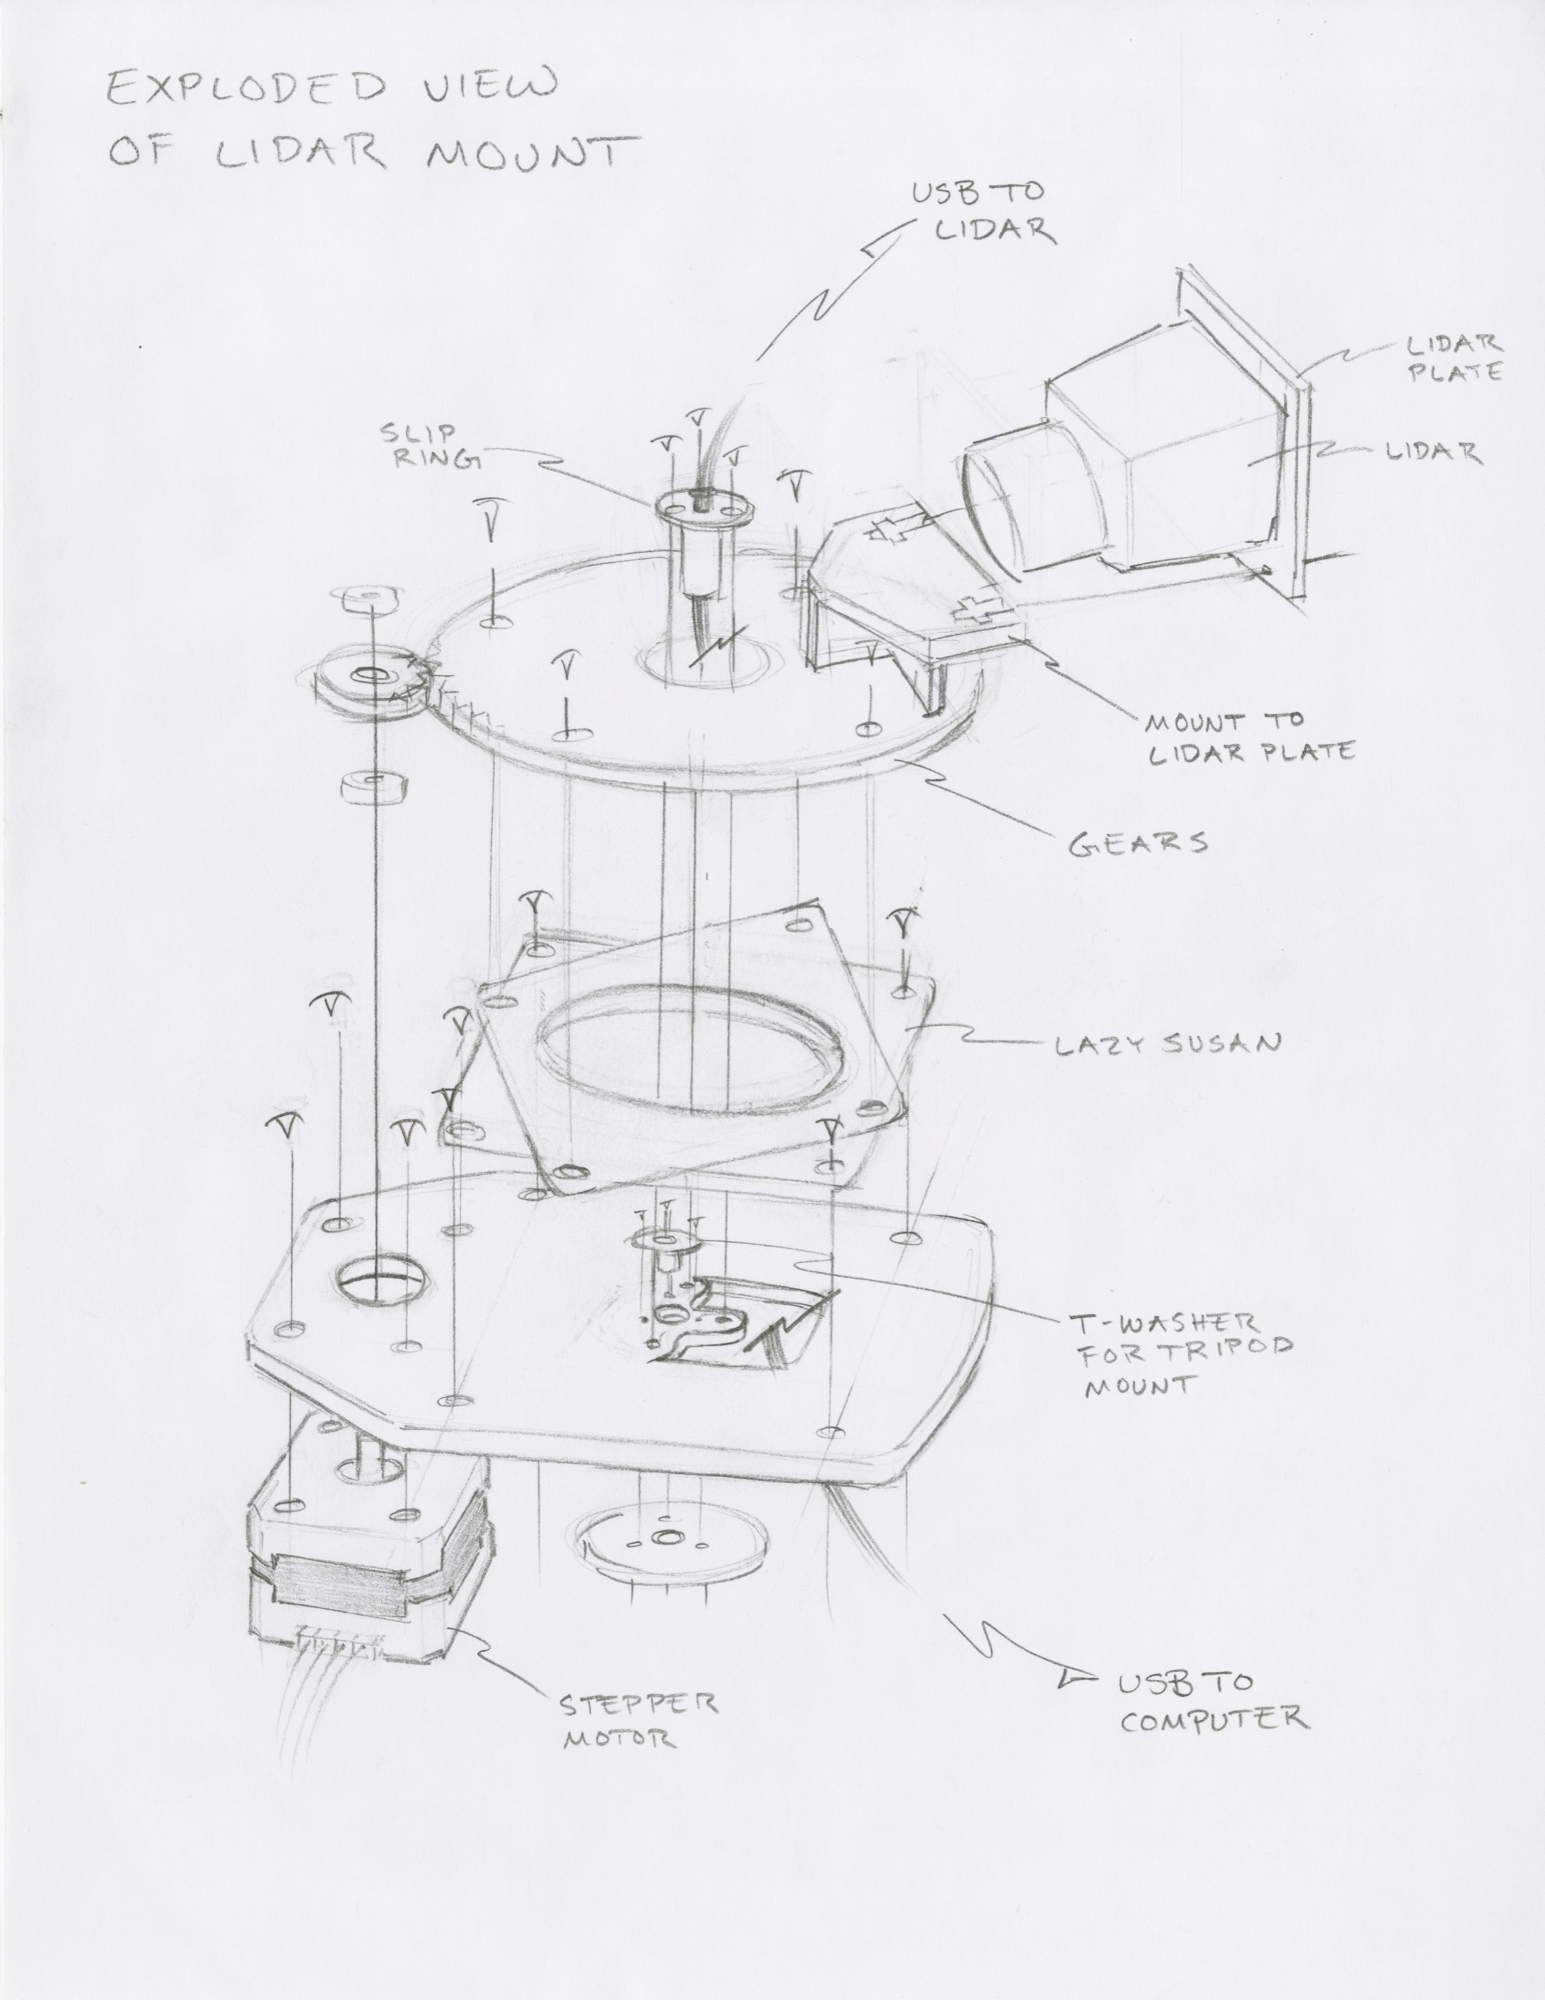 EXPLODED VIEW
OF LIDAR MOUNT
USB TO
LIDAR
LIDAR
PLATE
SLIP
RING
LIDAR
MOUNT TO
LIDAR PLATE
GEARS
LAZY SUSAN
T-WASHER
FOR TRIPOD
MOUNT
USB TO
COMPUTER
STEPPER
MOTOR